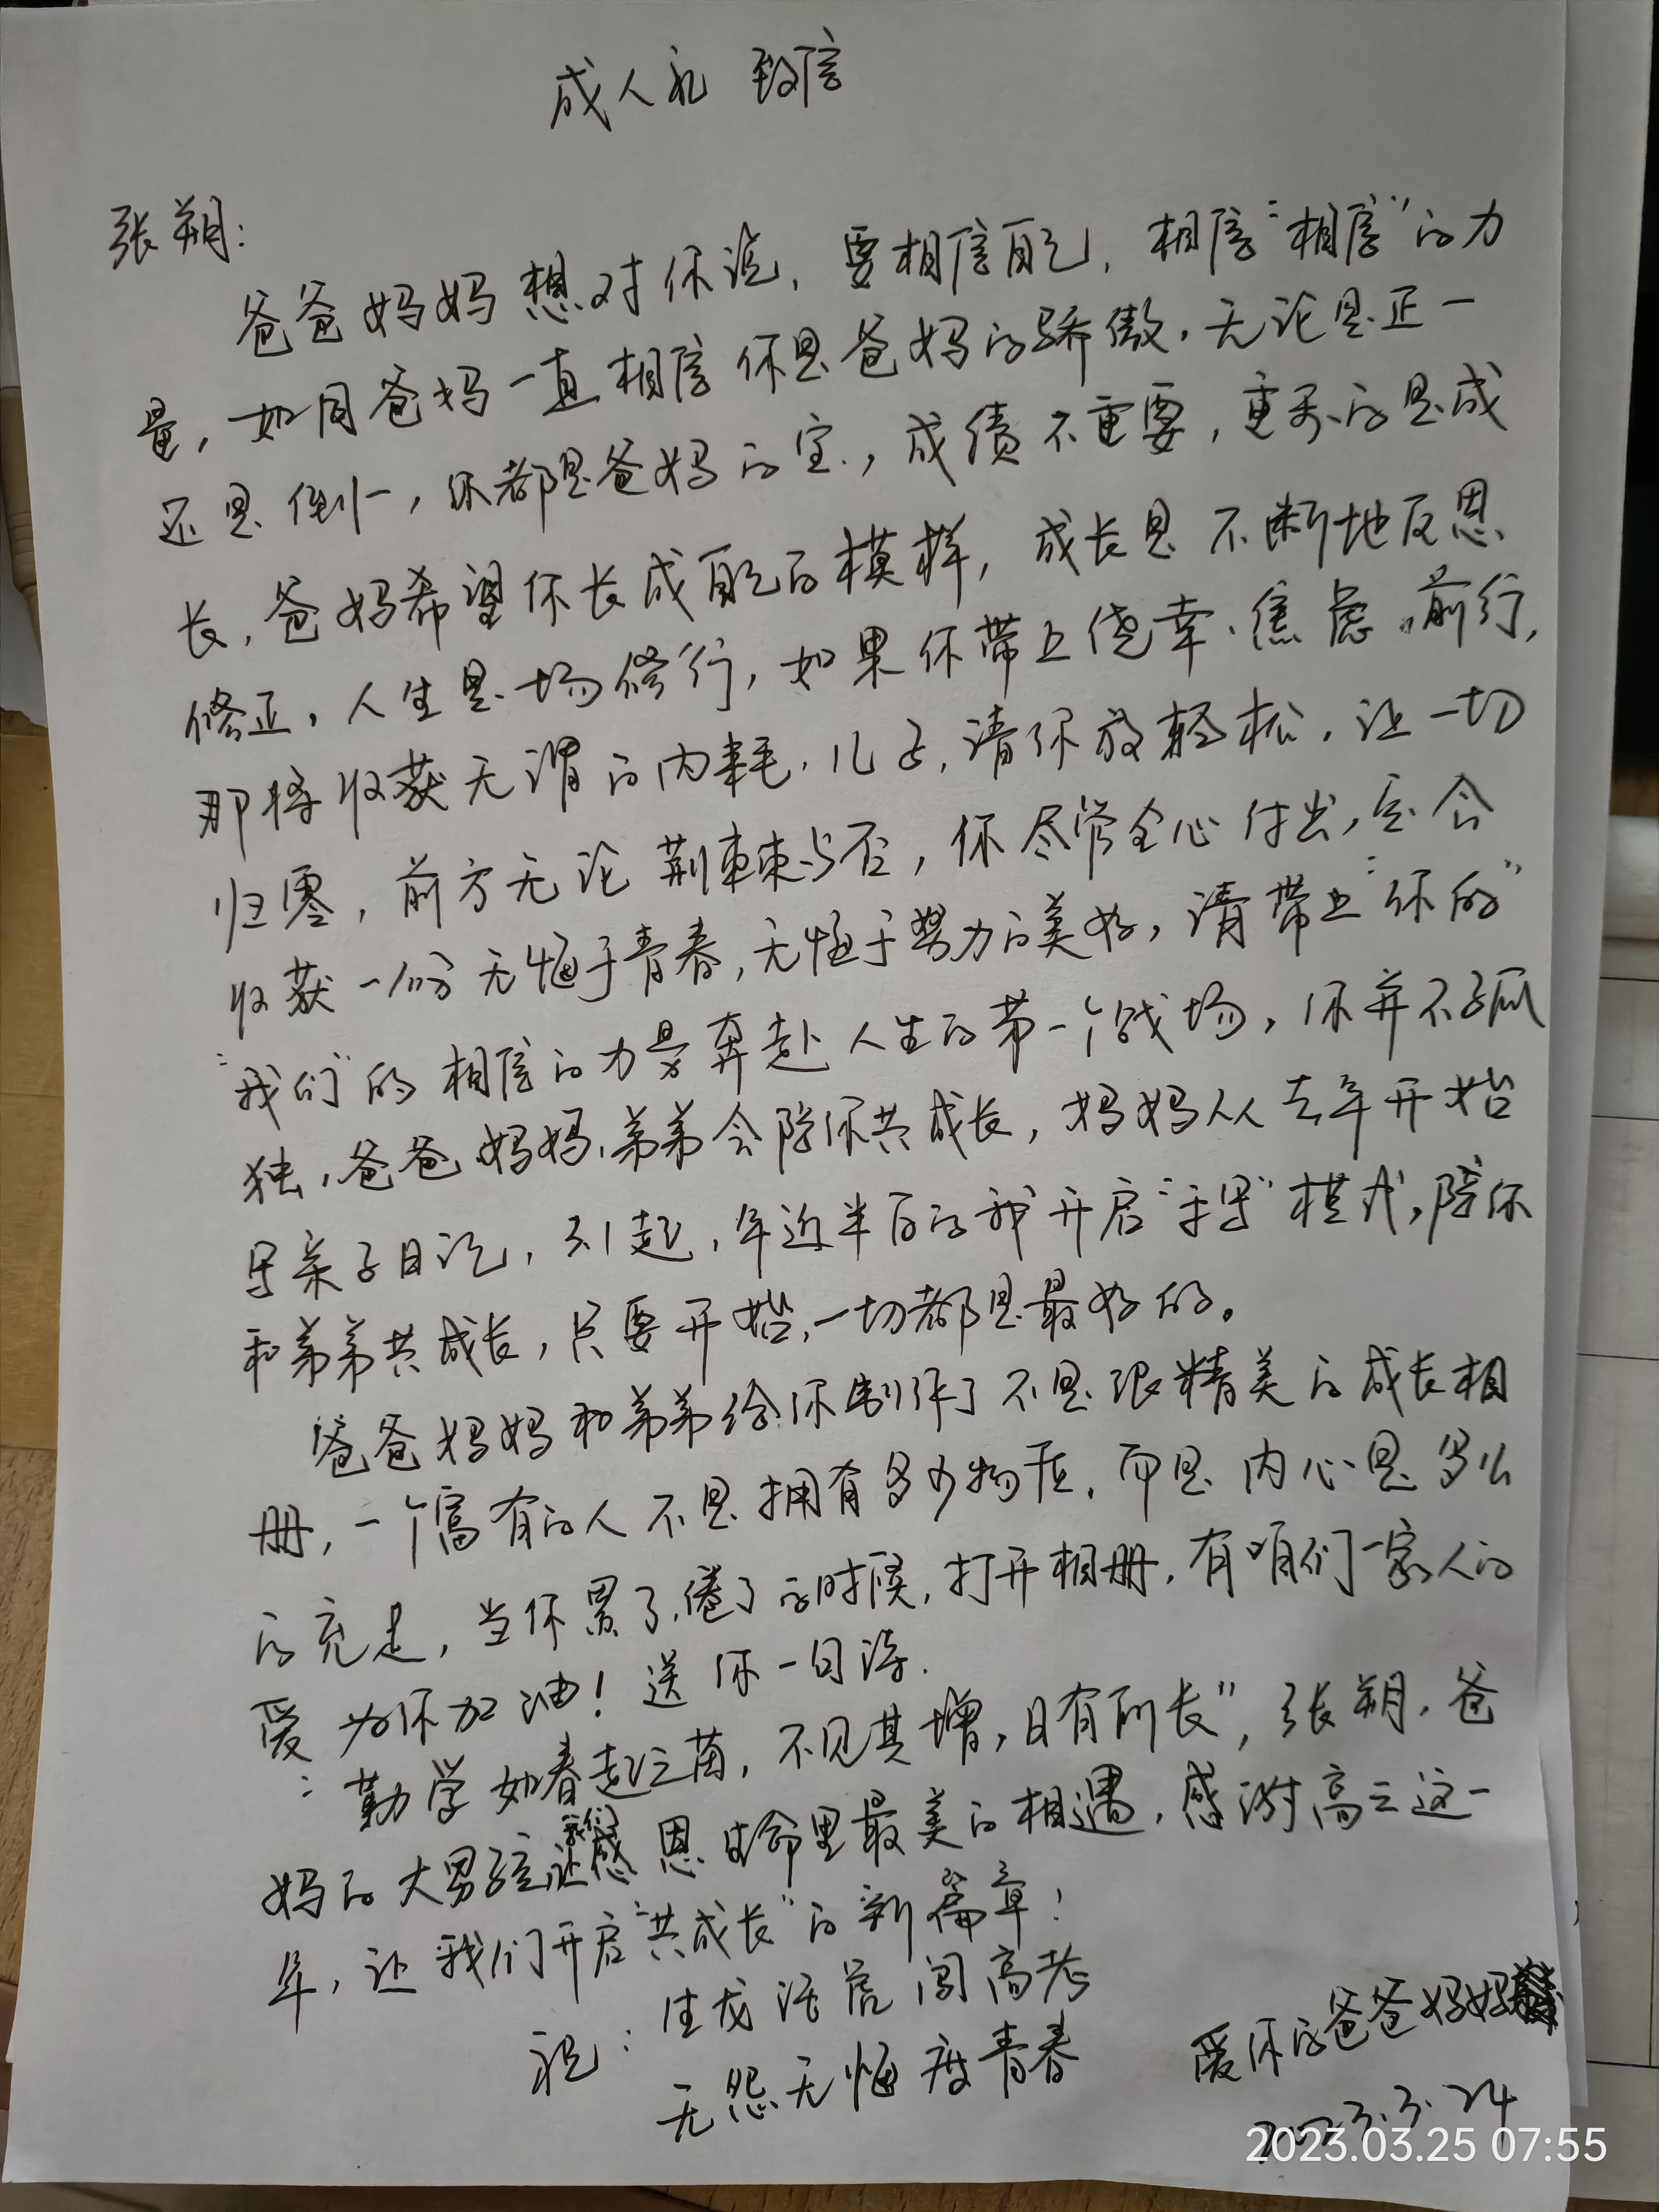 成人礼 致信
张朔:
爸爸妈妈想对你说,要相信自己,相信“相信”的力
量,如同爸妈一直相信你是爸妈的骄傲,无论是正一
还是倒一,你都是爸妈的宝,成绩不重要,重要的是成
长,爸妈希望你长成自己的模样,成长是不断地反思、
修正,人生是一场修行,如果你带上侥幸、焦虑前行,
那将收获无谓的内耗,儿子,请你放轻松,让一切
归零,前方无论荆棘与否,你尽管全心付出,定会
收获一份无悔于青春,无悔于努力的美好,请带上“你的”
“我们”的相信的力量奔赴人生的第一个战场,你并不孤
独,爸爸妈妈、弟弟会陪你共成长,妈妈从去年开始
写亲子日记,引起,年近半百的我开启“手写”模式,陪你
和弟弟共成长,只要开始,一切都是最好的。
爸爸妈妈和弟弟给你制作了不是很精美的成长相
册,一个富有的人不是拥有多少物质,而是内心是多么
的充足,当你累了、倦了的时候,打开相册,有咱们一家人的
爱为你加油!送你一句话.
“勤学如春起之苗,不见其增,日有所长”,张朔,爸
妈的大男孩,让我们感恩生命里最美的相遇,感谢高三这一
年,让我们开启“共成长”的新篇章!
祝:生龙活虎闯高考
无怨无悔度青春
爱你的爸爸妈妈
2023.3.24
2023.03.25 07:55